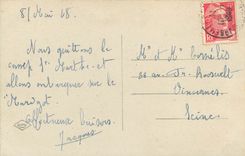 8 Mai 48.
Nous quittons le
camp Ste Marthe et
allons embarquer sur le
Marigot.
Affectueux baisers.
Jacques
Mr et Mme
av. Pt Roosevelt
Vincennes
Seine